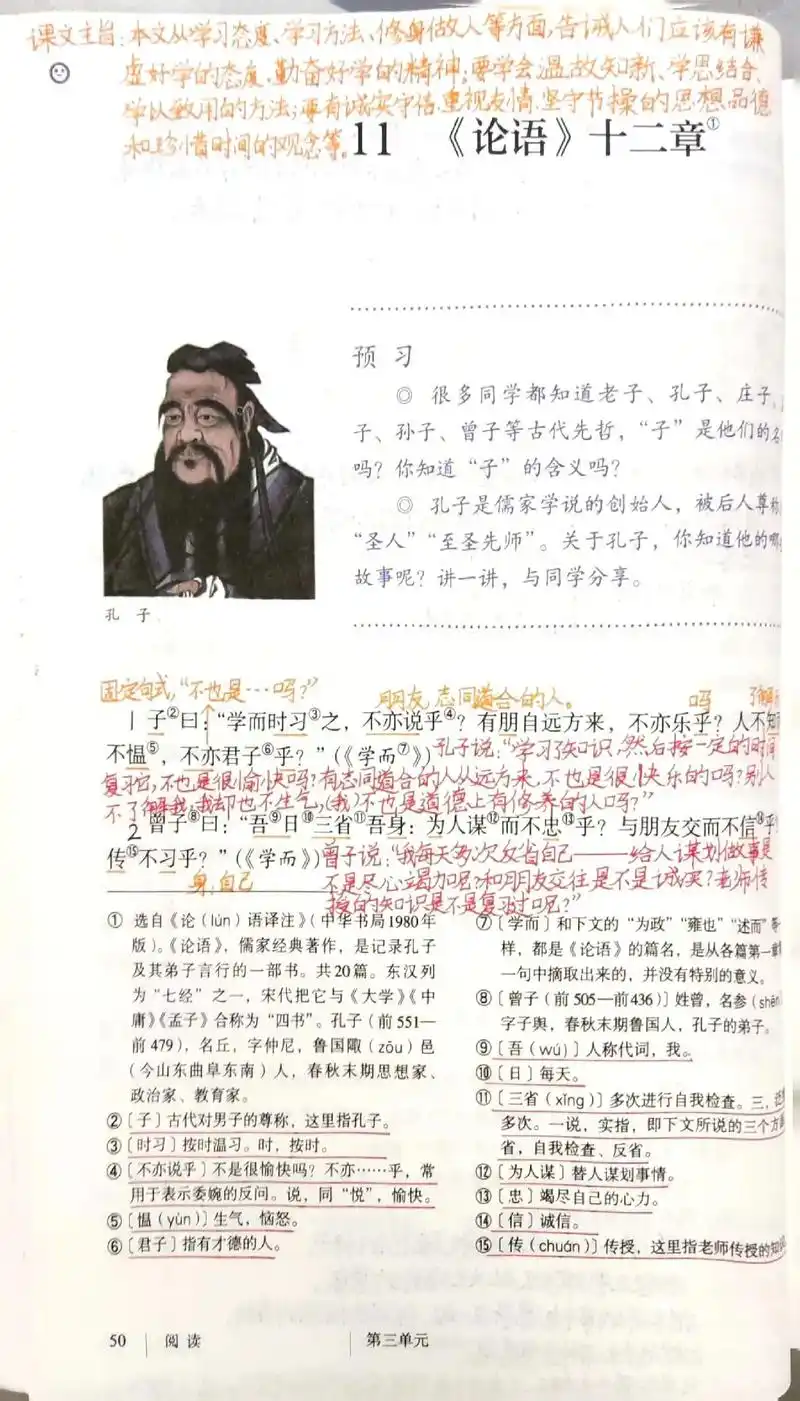 课文主旨:本文从学习态度、学习方法、修身做人等方面,告诫人们应该有谦
虚好学的态度、勤奋好学的精神;要学会温故知新、学思结合、
学以致用的方法;要有诚实守信、重视友情、坚守节操的思想品德
和珍惜时间的观念等。
11 《论语》十二章①
预 习
◎ 很多同学都知道老子、孔子、庄子、
子、孙子、曾子等古代先哲,“子”是他们的名
吗?你知道“子”的含义吗?
◎ 孔子是儒家学说的创始人,被后人尊称
“圣人”“至圣先师”。关于孔子,你知道他的哪
故事呢?讲一讲,与同学分享。
孔 子
固定句式,“不也是…吗?”
朋友,志同道合的人。
吗
了解
1 子②曰:“学而时习③之,不亦说乎④?有朋自远方来,不亦乐乎?人不知
不愠⑤,不亦君子⑥乎?”(《学而⑦》)
孔子说:“学习了知识,然后按一定的时间
复习它,不也是很愉快吗?有志同道合的人从远方来,不也是很快乐的吗?别人
不了解我,我却也不生气,(我)不也是道德上有修养的人吗?”
2 曾子⑧曰:“吾⑨日⑩三省⑪吾身:为人谋⑫而不忠⑬乎?与朋友交而不信⑭乎
传⑮不习乎?”(《学而》)
曾子说:“我每天多次反省自己——给人谋划做事是
身:自己
不是尽心竭力呢?和朋友交往是不是诚实?老师传
授的知识是不是复习过呢?”
① 选自《论(lún)语译注》(中华书局1980年
版)。《论语》,儒家经典著作,是记录孔子
及其弟子言行的一部书。共20篇。东汉列
为“七经”之一,宋代把它与《大学》《中
庸》《孟子》合称为“四书”。孔子(前551—
前479),名丘,字仲尼,鲁国陬(zōu)邑
(今山东曲阜东南)人,春秋末期思想家、
政治家、教育家。
②〔子〕古代对男子的尊称,这里指孔子。
③〔时习〕按时温习。时,按时。
④〔不亦说乎〕不是很愉快吗?不亦……乎,常
用于表示委婉的反问。说,同“悦”,愉快。
⑤〔愠(yùn)〕生气,恼怒。
⑥〔君子〕指有才德的人。
⑦〔学而〕和下文的“为政”“雍也”“述而”等
样,都是《论语》的篇名,是从各篇第一章
一句中摘取出来的,并没有特别的意义。
⑧〔曾子(前505—前436)〕姓曾,名参(shēn)
字子舆,春秋末期鲁国人,孔子的弟子。
⑨〔吾(wú)〕人称代词,我。
⑩〔日〕每天。
⑪〔三省(xǐng)〕多次进行自我检查。三,
多次。一说,实指,即下文所说的三个方面
省,自我检查、反省。
⑫〔为人谋〕替人谋划事情。
⑬〔忠〕竭尽自己的心力。
⑭〔信〕诚信。
⑮〔传(chuán)〕传授,这里指老师传授的知
50 阅 读 第三单元